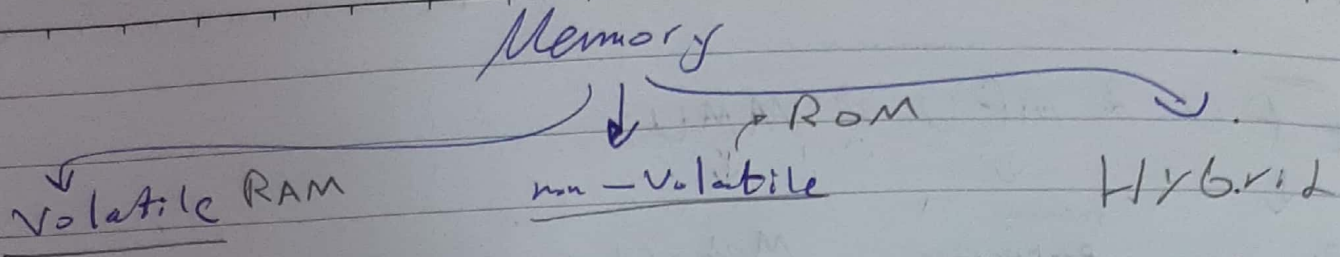 Memory
ROM
Volatile RAM non-Volatile Hybrid